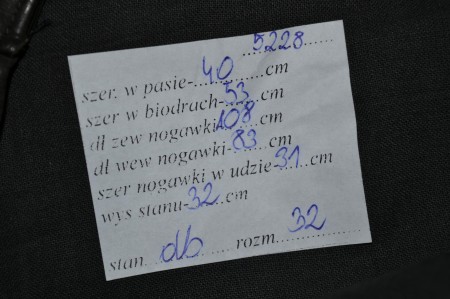 5228
szer. w pasie-40cm
szer w biodrach-53cm
dł zew nogawki-108cm
dł wew nogawki-83cm
szer nogawki w udzie-31cm
wys stanu-32cm
stan db rozm. 32